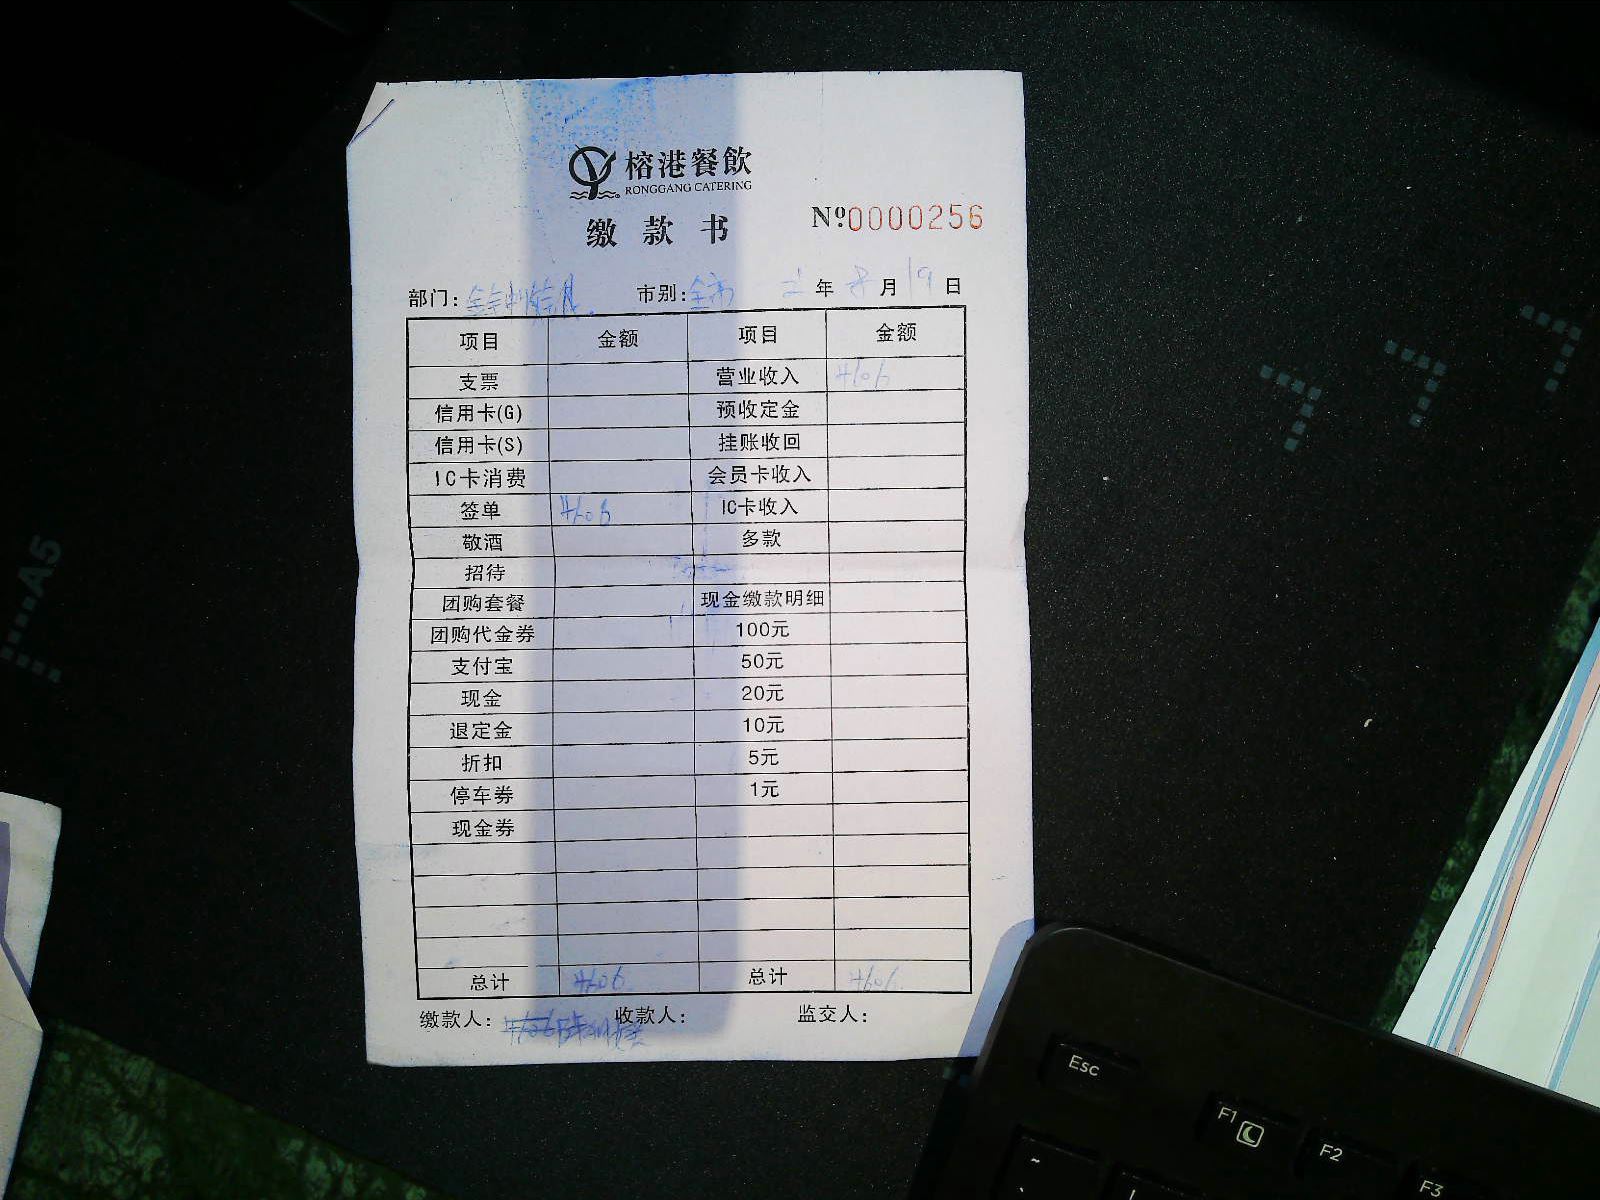 榕港餐飲
RONGGANG CATERING
缴款书
№0000256
部门: 市别:全市 年 月19日
项目 金额 项目 金额
支票 营业收入 4606
信用卡(G) 预收定金
信用卡(S) 挂账收回
IC卡消费 会员卡收入
签单 4606 IC卡收入
敬酒 多款
招待
团购套餐 现金缴款明细
团购代金券 100元
支付宝 50元
现金 20元
退定金 10元
折扣 5元
停车券 1元
现金券
总计 4606 总计 4606
缴款人: 收款人: 监交人:
A5
Esc
F1
F2
F3
~